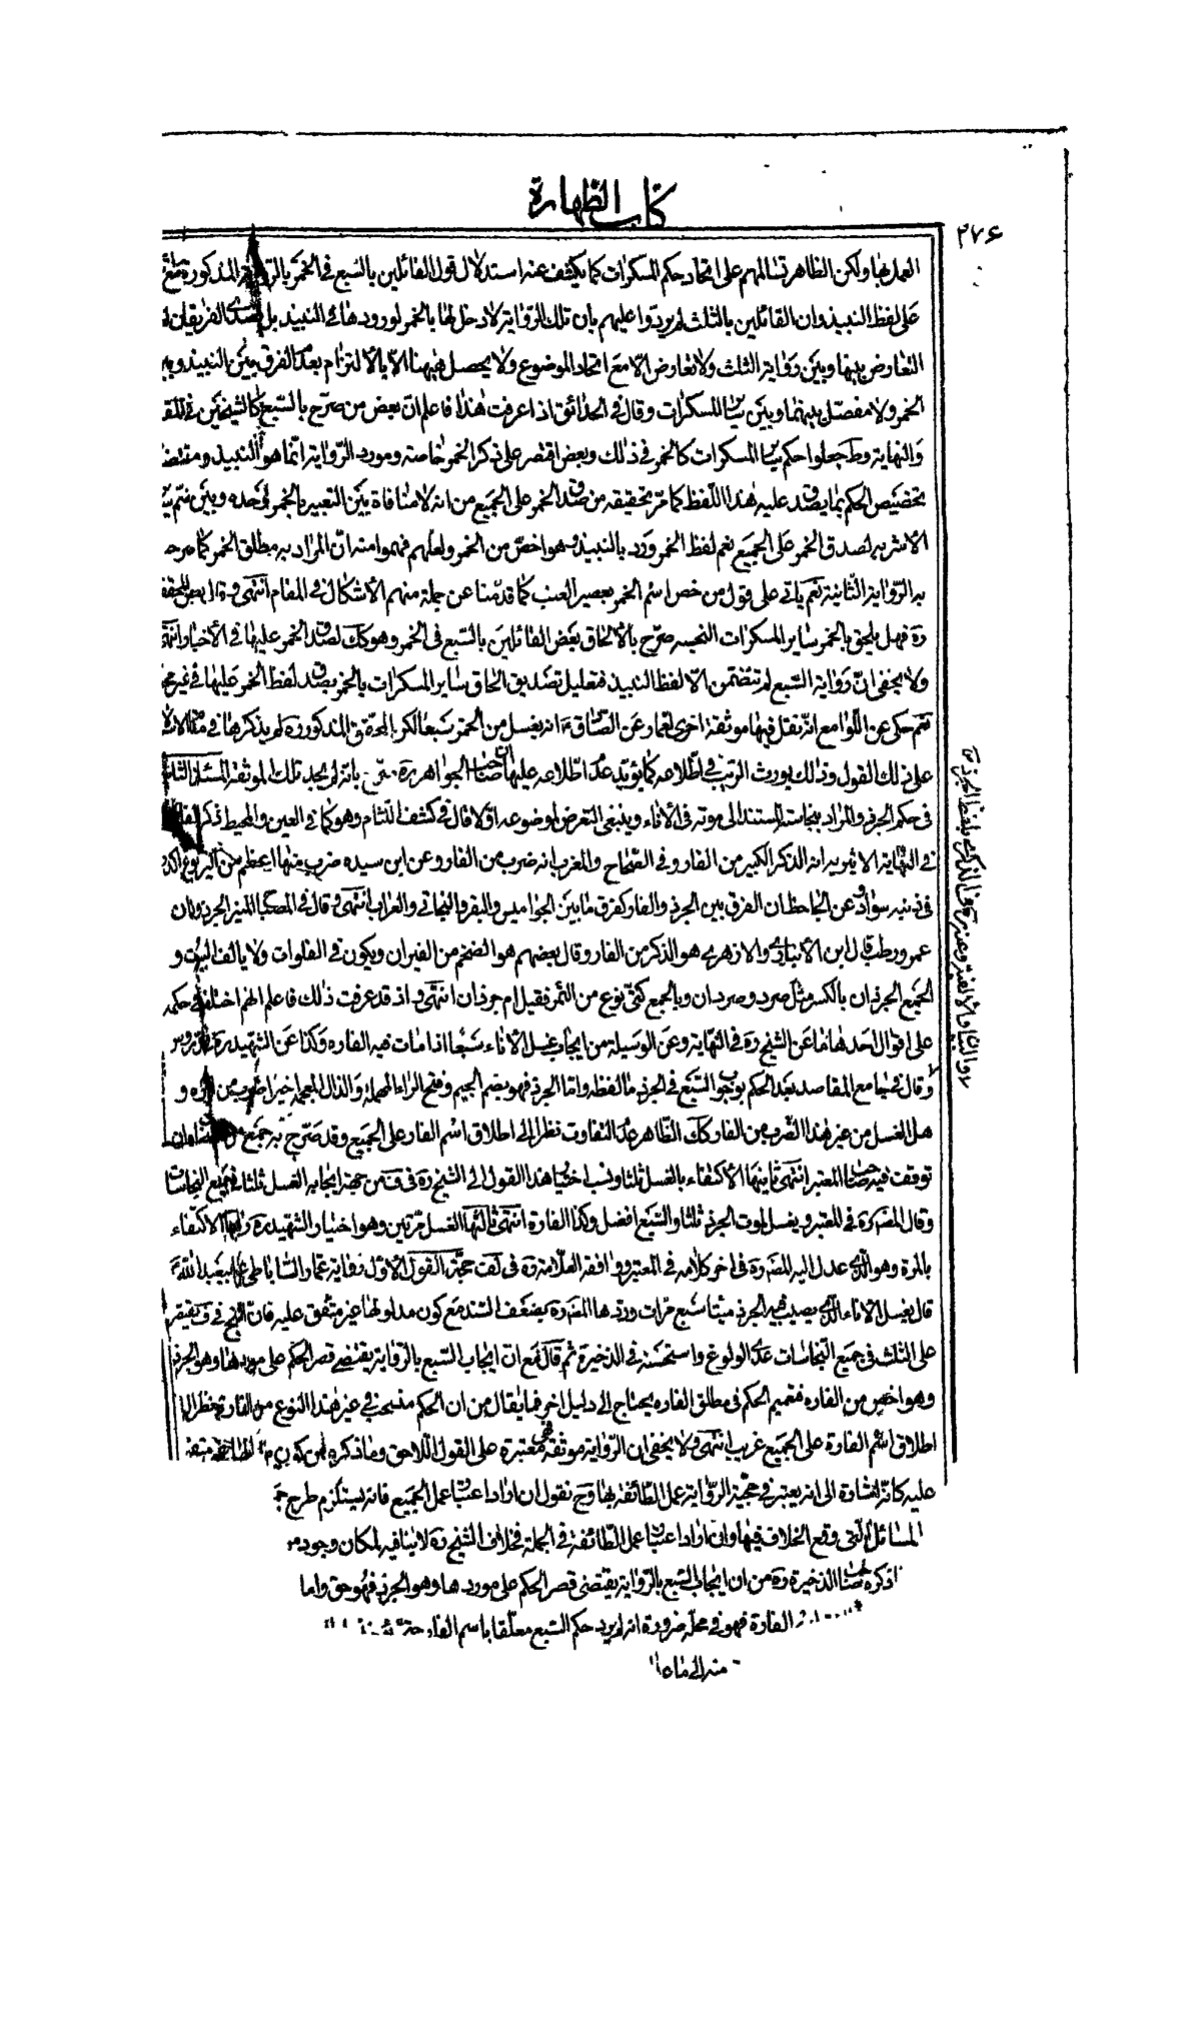 كتاب الطهارة
٢٧۶
العمل بها ولكن الظاهر تسالمهم على اتحاد حكم المسكرات كما يكشف عنه استدلال قول القائلين بالسبع في الخمر بالرواية المذكورة مع
على لفظ النبيذ وان القائلين بالثلث لم يردوا عليهم بان تلك الرواية لا دخل لها بالخمر لورودها في النبيذ بل تصدى الفريقان
التعارض بينها وبين رواية الثلث ولا تعارض الا مع اتحاد الموضوع ولا يحصل هيهنا الا بالالتزام بعدم الفرق بين النبيذ و
الخمر ولا مفصل بينهما وبين سائر المسكرات وقال في الحدائق اذا عرفت هذا فاعلم ان بعض من صرح بالسبع كالشيخين في
والنهاية وط جعلوا حكم سائر المسكرات كالخمر في ذلك وبعض اقتصر على ذكر الخمر خاصة ومورد الرواية انما هو النبيذ ومقتضى
تخصيص الحكم بما يصدق عليه هذا اللفظ كما مر تحقيقه من صدق الخمر على الجميع من انه لا منافاة بين التعبير بالخمر وحده وبين
الاشربه لصدق الخمر على الجميع نعم لفظ الخمر ورد بالنبيذ وهو اخص من الخمر ولعلهم فهموا منه ان المراد به مطلق الخمر كما
به الرواية الثانية نعم ياتي على قول من خص اسم الخمر بعصير العنب كما قدمنا عن جملة منهم الاشكال في المقام انتهى وقال بعض
ره فهل يلحق بالخمر ساير المسكرات النجسه صرح بالالحاق بعض القائلين بالسبع في الخمر وهو كك لصدق الخمر عليها في الاخبار انتهى
ولا يخفى ان رواية السبع لم تتضمن الا لفظ النبيذ فتعليل تصديق الحاق ساير المسكرات بالخمر بصدق لفظ الخمر عليها في غير
نعم حكى عن اللوامع انه نقل فيها موثقة اخرى لعمار عن الصادق ع انه يغسل من الخمر سبعا لكن المحقق المذكور ره لم يذكرها في مقام
على ذلك القول وذلك يورث الريب في اطلاعه كما يؤيد عدم اطلاعه عليها ان صاحب الجواهر ره بانه لم يجد تلك الموثقة المسئلة الثانية
في حكم الجرذ والمراد نجاسته المستند الى موته في الاناء وينبغي التعرض لموضوعه اولا قال في كشف اللثام وهو كما في العين والمحيط ذكر الفار
في النهاية الاثيريه انه الذكر الكبير من الفار وفي الصحاح والمغرب انه ضرب من الفار وعن ابن سيده ضرب منها اعظم من اليربوع اكدر
في ذنبه سواد وعن الجاحظ ان الفرق بين الجرذ والفار كفرق ما بين الجواميس والبقر والبخاتي والعراب انتهى وقال في المصباح المنير الجرذ وزان
عمر ورطب قال ابن الانباري والازهري هو الذكر من الفار وقال بعضهم هو الضخم من الفيران ويكون في الفلوات ولا يالف البيوت و
الجميع الجرذان بالكسر مثل صرد وصردان وبالجمع كني نوع من التمر فقيل ام جرذان انتهى واذ قد عرفت ذلك فاعلم انهم اختلفوا في حكمه
على اقوال احدها ما عن الشيخ ره في النهاية وعن الوسيلة من ايجاب غسل الاناء سبعا اذا مات فيه الفاره وكذا عن الشهيد ره
وقال في جامع المقاصد بعد الحكم بوجوب السبع في الجرذ ما لفظه واما الجرذ فهو بضم الجيم وفتح الراء المهملة والذال المعجمه اخيرا ضرب من و
هل الغسل من غير هذا الضرب من الفار كك الظاهر عدم التفاوت نظرا الى اطلاق اسم الفار على الجميع وقد صرح به جمع من
توقف فيه صاحب المعتبر انتهى ثانيها الاكتفاء بالغسل ثلثا ونسب اختيار هذا القول الى الشيخ ره في ف من جهة ايجابه الغسل ثلثا في جميع النجاسات
وقال المصنف ره في المعتبر ويغسل لموت الجرذ ثلثا والسبع افضل وكذا الفارة انتهى ثالثها الغسل مرتين وهو اختيار الشهيد ره رابعها الاكتفاء
بالمرة وهو الذي عدل اليه المصنف ره في اخر كلامه في المعتبر ووافقه العلامة ره في لف حجة القول الاول رواية عمار الساباطي عن ابيعبد الله ع
قال يغسل الاناء الذي يصيب فيه الجرذ ميتا سبع مرات وردها المصنف ره بضعف السند مع كون مدلولها غير متفق عليه فان الشيخ في ف يقتصر
على الثلث في جميع النجاسات عدا الولوغ واستحسنه في الذخيرة ثم قال مع ان ايجاب السبع بالرواية يقتضي قصر الحكم على موردها وهو الجرذ
وهو اخص من الفاره فتعميم الحكم في مطلق الفاره يحتاج الى دليل اخر فما يقال من ان الحكم منسحب في غير هذا النوع من الفارة نظرا الى
اطلاق اسم الفارة على الجميع غريب انتهى ولا يخفى ان الرواية موثقة فهي معتبرة على القول اللاحق وما ذكره من كون
عليه كانه اشارة الى انه يعتبر في حجية الرواية عمل الطائفة بها وح نقول ان اراد اعتبار عمل الجميع فانه يستلزم طرح
المسائل التي وقع الخلاف فيها وان اراد اعتبار عمل الطائفة في الجملة فخلاف الشيخ ره لا ينافيه لمكان وجود
ذكره صاحب الذخيرة ره من ان ايجاب السبع بالرواية يقتضي قصر الحكم على موردها وهو الجرذ فهو حق واما
الفارة فهو في محله ضرورة انه لم يرد حكم السبع معلقا باسم الفارة
منه الى ما